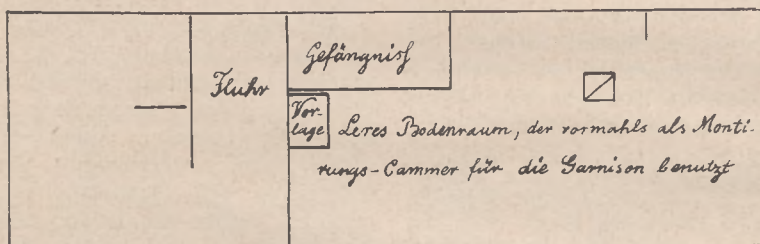 Gefängniß
Fluhr
Vor-
lage
Leres Bodenraum, der vormahls als Monti-
rungs-Cammer für die Garnison benutzt